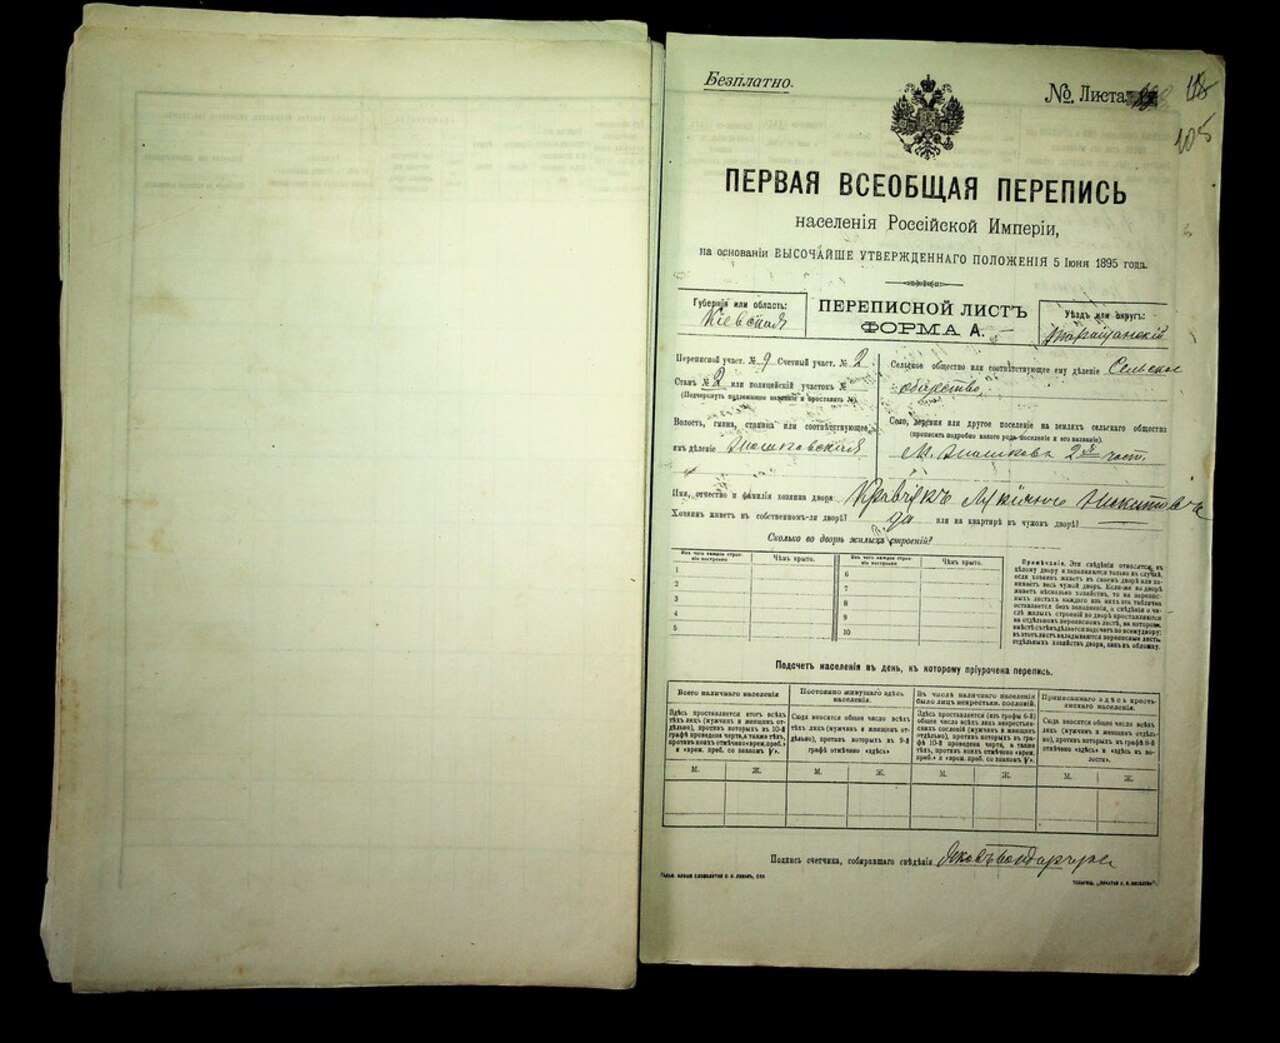 Безплатно.
№ Листа
118
105
ПЕРВАЯ ВСЕОБЩАЯ ПЕРЕПИСЬ
населенія Россійской Имперіи,
на основаніи ВЫСОЧАЙШЕ УТВЕРЖДЕННАГО ПОЛОЖЕНІЯ 5 Іюня 1895 года.
Губернія или область:
Кіевская
ПЕРЕПИСНОЙ ЛИСТЪ
ФОРМА А.
Уѣздъ или округъ:
Таращанскій
Переписной участ. № 9 Счетный участ. № 2
Станъ № 2 или полицейскій участокъ №
(Подчеркнуть надлежащее названіе и проставить №)
Волость, гмина, станица или соотвѣтствующее
имъ дѣленіе
Сельское общество или соотвѣтствующее ему дѣленіе Сельское
общество.
Село, деревня или другое поселеніе на земляхъ сельскаго общества
(прописать подробно какого рода поселеніе и его названіе).
М. 2й част.
Имя, отчество и фамилія хозяина двора Кравчукъ Никитовъ
Хозяинъ живетъ въ собственномъ-ли дворѣ? да или на квартирѣ въ чужомъ дворѣ?
Сколько во дворѣ жилыхъ строеній?
Изъ чего каждое строеніе построено Чѣмъ крыто. Изъ чего каждое строеніе построено Чѣмъ крыто.
1 6
2 7
3 8
4 9
5 10
Примѣчаніе. Эти свѣдѣнія относятся къ
цѣлому двору и заполняются только въ случаѣ,
если хозяинъ живетъ въ своемъ дворѣ или за-
нимаетъ весь чужой дворъ. Если-же во дворѣ
живетъ нѣсколько хозяйствъ, то на перепис-
ныхъ листахъ каждаго изъ нихъ эта табличка
оставляется безъ заполненія, а свѣдѣнія о чи-
слѣ жилыхъ строеній во дворѣ проставляются
на отдѣльномъ переписномъ листѣ, на которомъ
вмѣстѣ съ тѣмъ дѣлается подсчетъ по всему двору;
въ этотъ листъ вкладываются переписные листы
отдѣльныхъ хозяйствъ двора, какъ въ обложку.
Подсчетъ населенія въ день, къ которому пріурочена перепись.
Всего наличнаго населенія
Здѣсь проставляется итогъ всѣхъ
тѣхъ лицъ (мужчинъ и женщинъ от-
дѣльно), противъ которыхъ въ 10-й
графѣ проведена черта, а также тѣхъ,
противъ коихъ отмѣчено «врем. преб.»
и «врем. преб. со знакомъ V».
Постоянно живущаго здѣсь
населенія.
Сюда вносится общее число всѣхъ
тѣхъ лицъ (мужчинъ и женщинъ от-
дѣльно), противъ которыхъ въ 9-й
графѣ отмѣчено «здѣсь»
Въ числѣ наличнаго населенія
было лицъ некрестьян. сословій.
Здѣсь проставляется (изъ графы 6-й)
общее число всѣхъ лицъ некрестьян-
скихъ сословій (мужчинъ и женщинъ
отдѣльно), противъ которыхъ въ гра-
фѣ 10-й проведена черта, а также
тѣхъ, противъ коихъ отмѣчено «врем.
преб.» и «врем. преб. со знакомъ V».
Приписаннаго здѣсь кресть-
янскаго населенія.
Сюда вносится общее число всѣхъ
лицъ (мужчинъ и женщинъ отдѣль-
но), противъ которыхъ въ графѣ 8-й
отмѣчено «здѣсь» и «здѣсь въ во-
лости».
М. Ж. М. Ж. М. Ж. М. Ж.
Подпись счетчика, собиравшаго свѣдѣнія